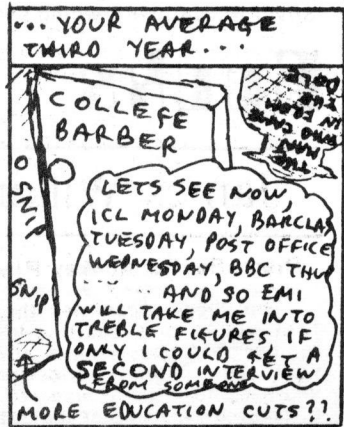 ... YOUR AVERAGE
THIRD YEAR...
COLLEGE
BARBER
THE
MAN
WHO CAME
IN FROM
THE
DOLE
SNIP
SNIP
LETS SEE NOW,
ICL MONDAY, BARCLAY
TUESDAY, POST OFFICE
WEDNESDAY, BBC THU
... .. AND SO EMI
WILL TAKE ME INTO
TREBLE FIGURES, IF
ONLY I COULD GET A
SECOND INTERVIEW
FROM SOMEONE
MORE EDUCATION CUTS??